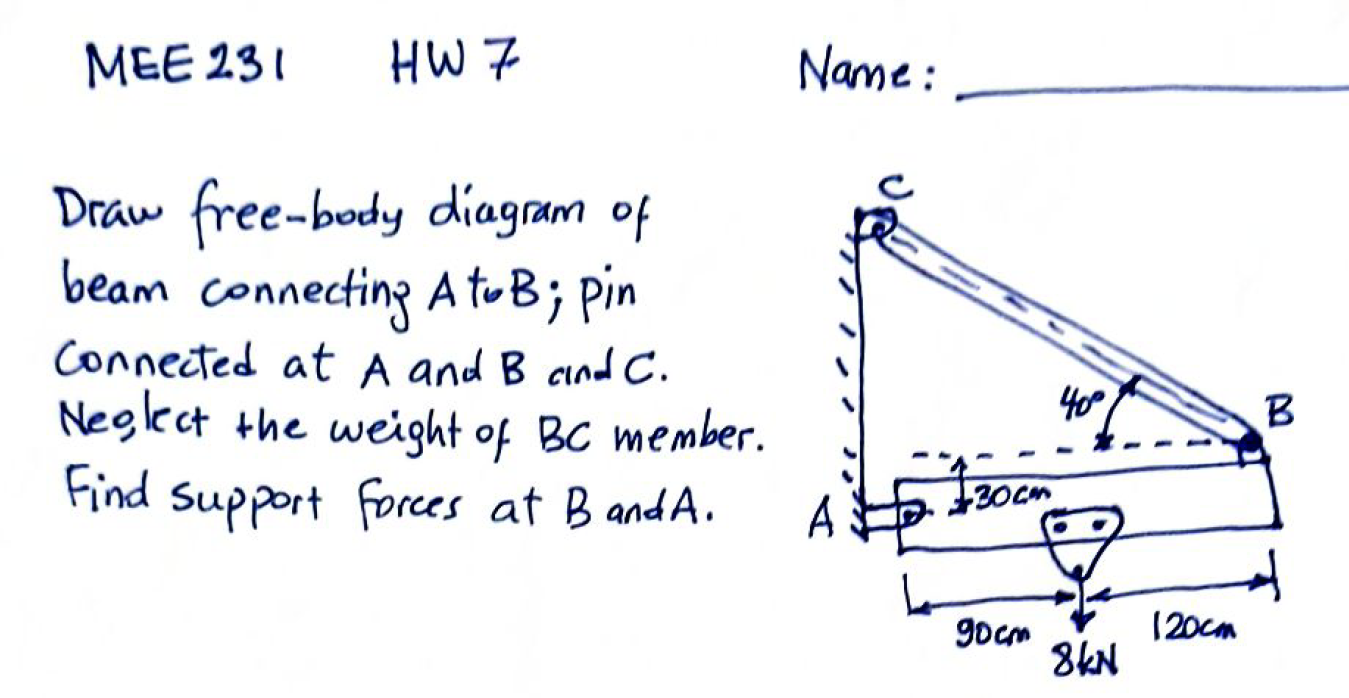 MEE 231 HW 7 Name:
Draw free-body diagram of
beam connecting A to B; pin
Connected at A and B and C.
Neglect the weight of BC member.
Find support forces at B and A.
C
40°
B
30cm
A
90cm
120cm
8kN